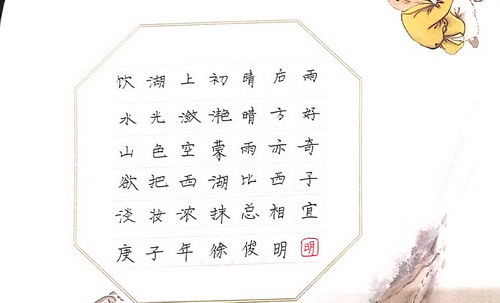 饮湖上初晴后雨
水光潋滟晴方好
山色空蒙雨亦奇
欲把西湖比西子
淡妆浓抹总相宜
庚子年徐俊明 明